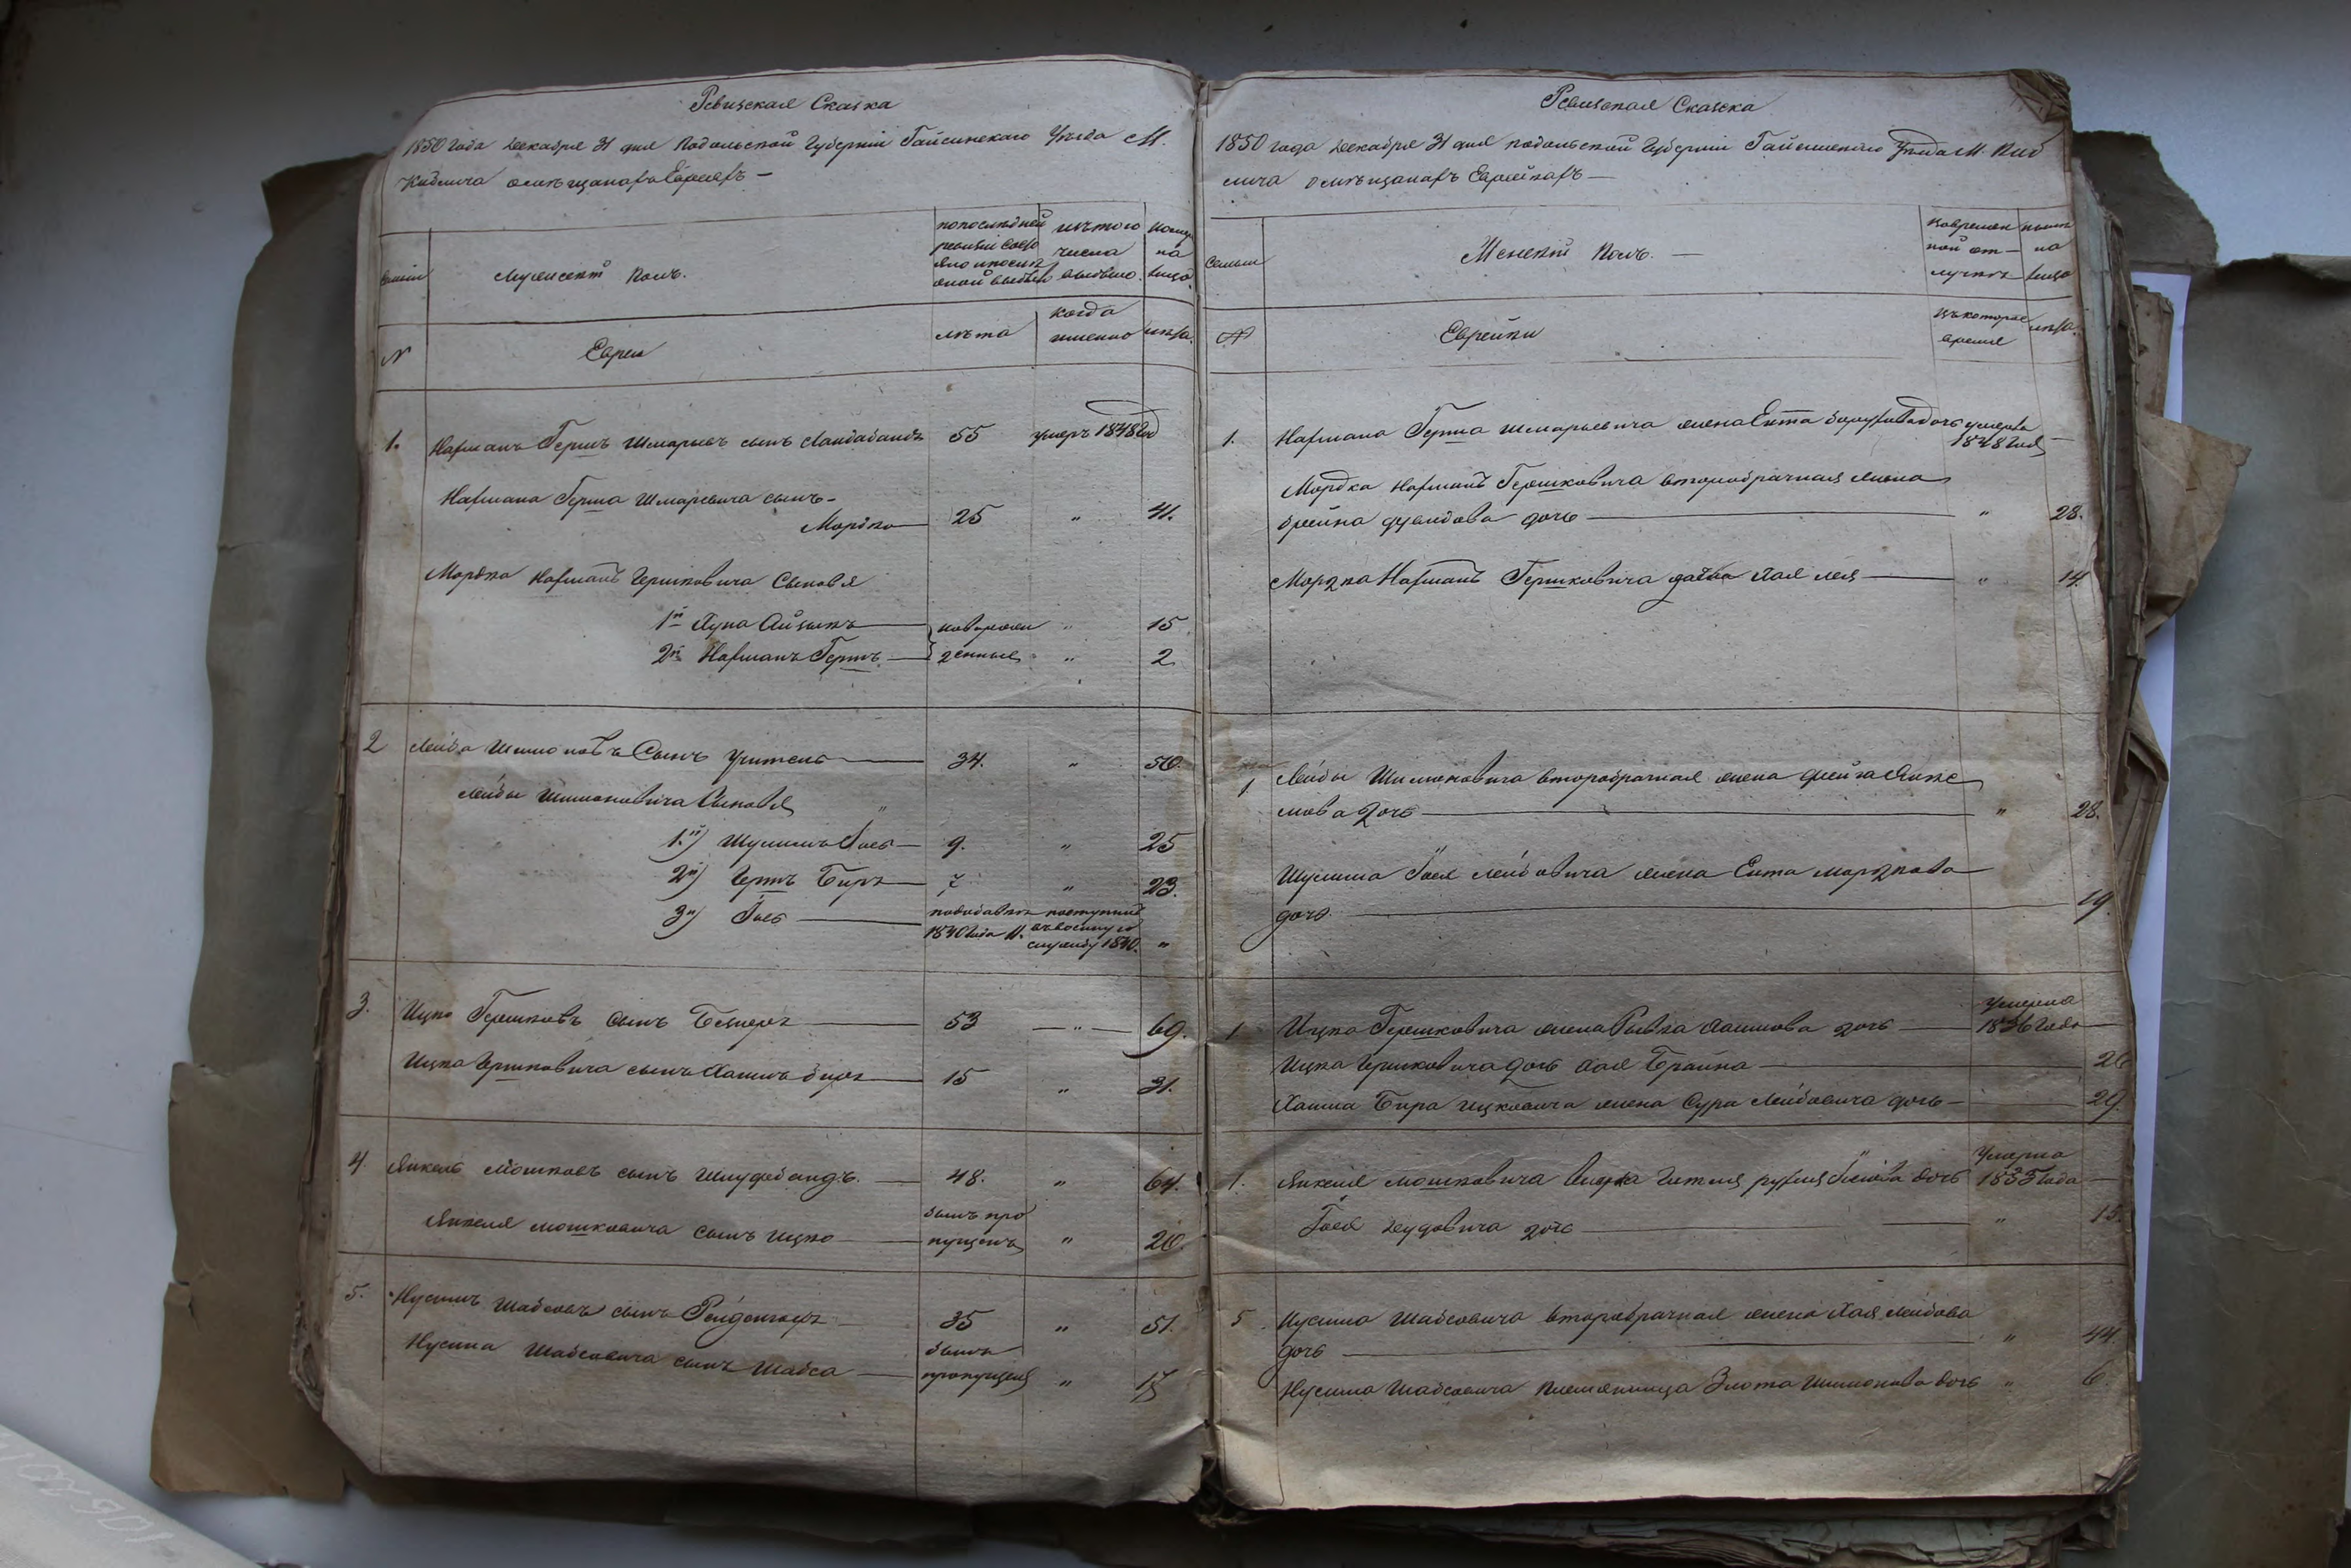 Ревизская Сказка
1850 года Декабря 31 дня Подольской Губернии Гайсинского Уезда М.
Кибличa о мещанахъ Евреяхъ —
Семьи
Мужеский полъ.
по последней ревизии состояло и после оной выбыло
изъ того числа выбыло.
ныне на лицо.
№
Евреи
лета
когда именно
лета.
1. Нахманъ Гершъ Шмарьевъ сынъ 55 умеръ 1848 год
Нахмана Герша Шмарьевича сынъ —
Мордко 25 " 41.
Мордка Нахманъ Гершковича Сыновья
1й Айзыкъ новорож " 15
2й Нахманъ Гершъ денные " 2
2 Лейба Шимоновъ Сынъ Учитель 34. " 50.
Лейбы Шимоновича Сыновья "
1й) Шулимъ Іось 9. " 25
2й) Гершъ Беръ 7 " 23.
3й) Іось поступилъ
1840 года 11. въ военную
службу 1840. "
3. Ицко Гершковъ Сынъ 53 — " — 69.
Ицка Гершковича сынъ Хаимъ Беръ 15 " 31.
4. Янкель Мошковъ сынъ 48. " 64.
былъ про
Янкеля Мошковича сынъ Ицко пущенъ " 20.
5. Нусимъ Шабсовъ сынъ 35 " 51.
былъ
Нусима Шабсовича сынъ Шабса пропущенъ " 17
Ревизская Сказка
1850 года Декабря 31 дня Подольской Губернии Гайсинского Уезда М. Киб
лича о мещанахъ Еврейкахъ —
Семьи
Женский полъ. —
во временной отлучке
ныне на лицо
№
Еврейки
съ которого время
лета.
1. Нахмана Герша Шмарьевича жена Ента дочь умерла
1848 года —
Мордка Нахманъ Гершковича второбрачная жена
Брейна дочь — " 28.
Мордка Нахманъ Гершковича Хая Лея — " 14.
1 Лейбы Шимоновича второбрачная жена Фейга Янке
лова дочь — " 28.
Шулима Іося Лейбовича жена Ента Мордкова
дочь — 19.
Умерла
1 Ицка Гершковича жена Ривка Хаимова дочь — 1836 года —
Ицка Гершковича дочь Хая Брайна — 26
Хаима Бера Ицковича жена Сура Лейбовича дочь — 29.
Умерла
1. Янкеля Мошковича дочь 1835 года —
дочь — " 15.
5 Нусима Шабсовича второбрачная жена Хая Лейбова
дочь — " 44.
Нусима Шабсовича племянница Злота Шимонова дочь " 6